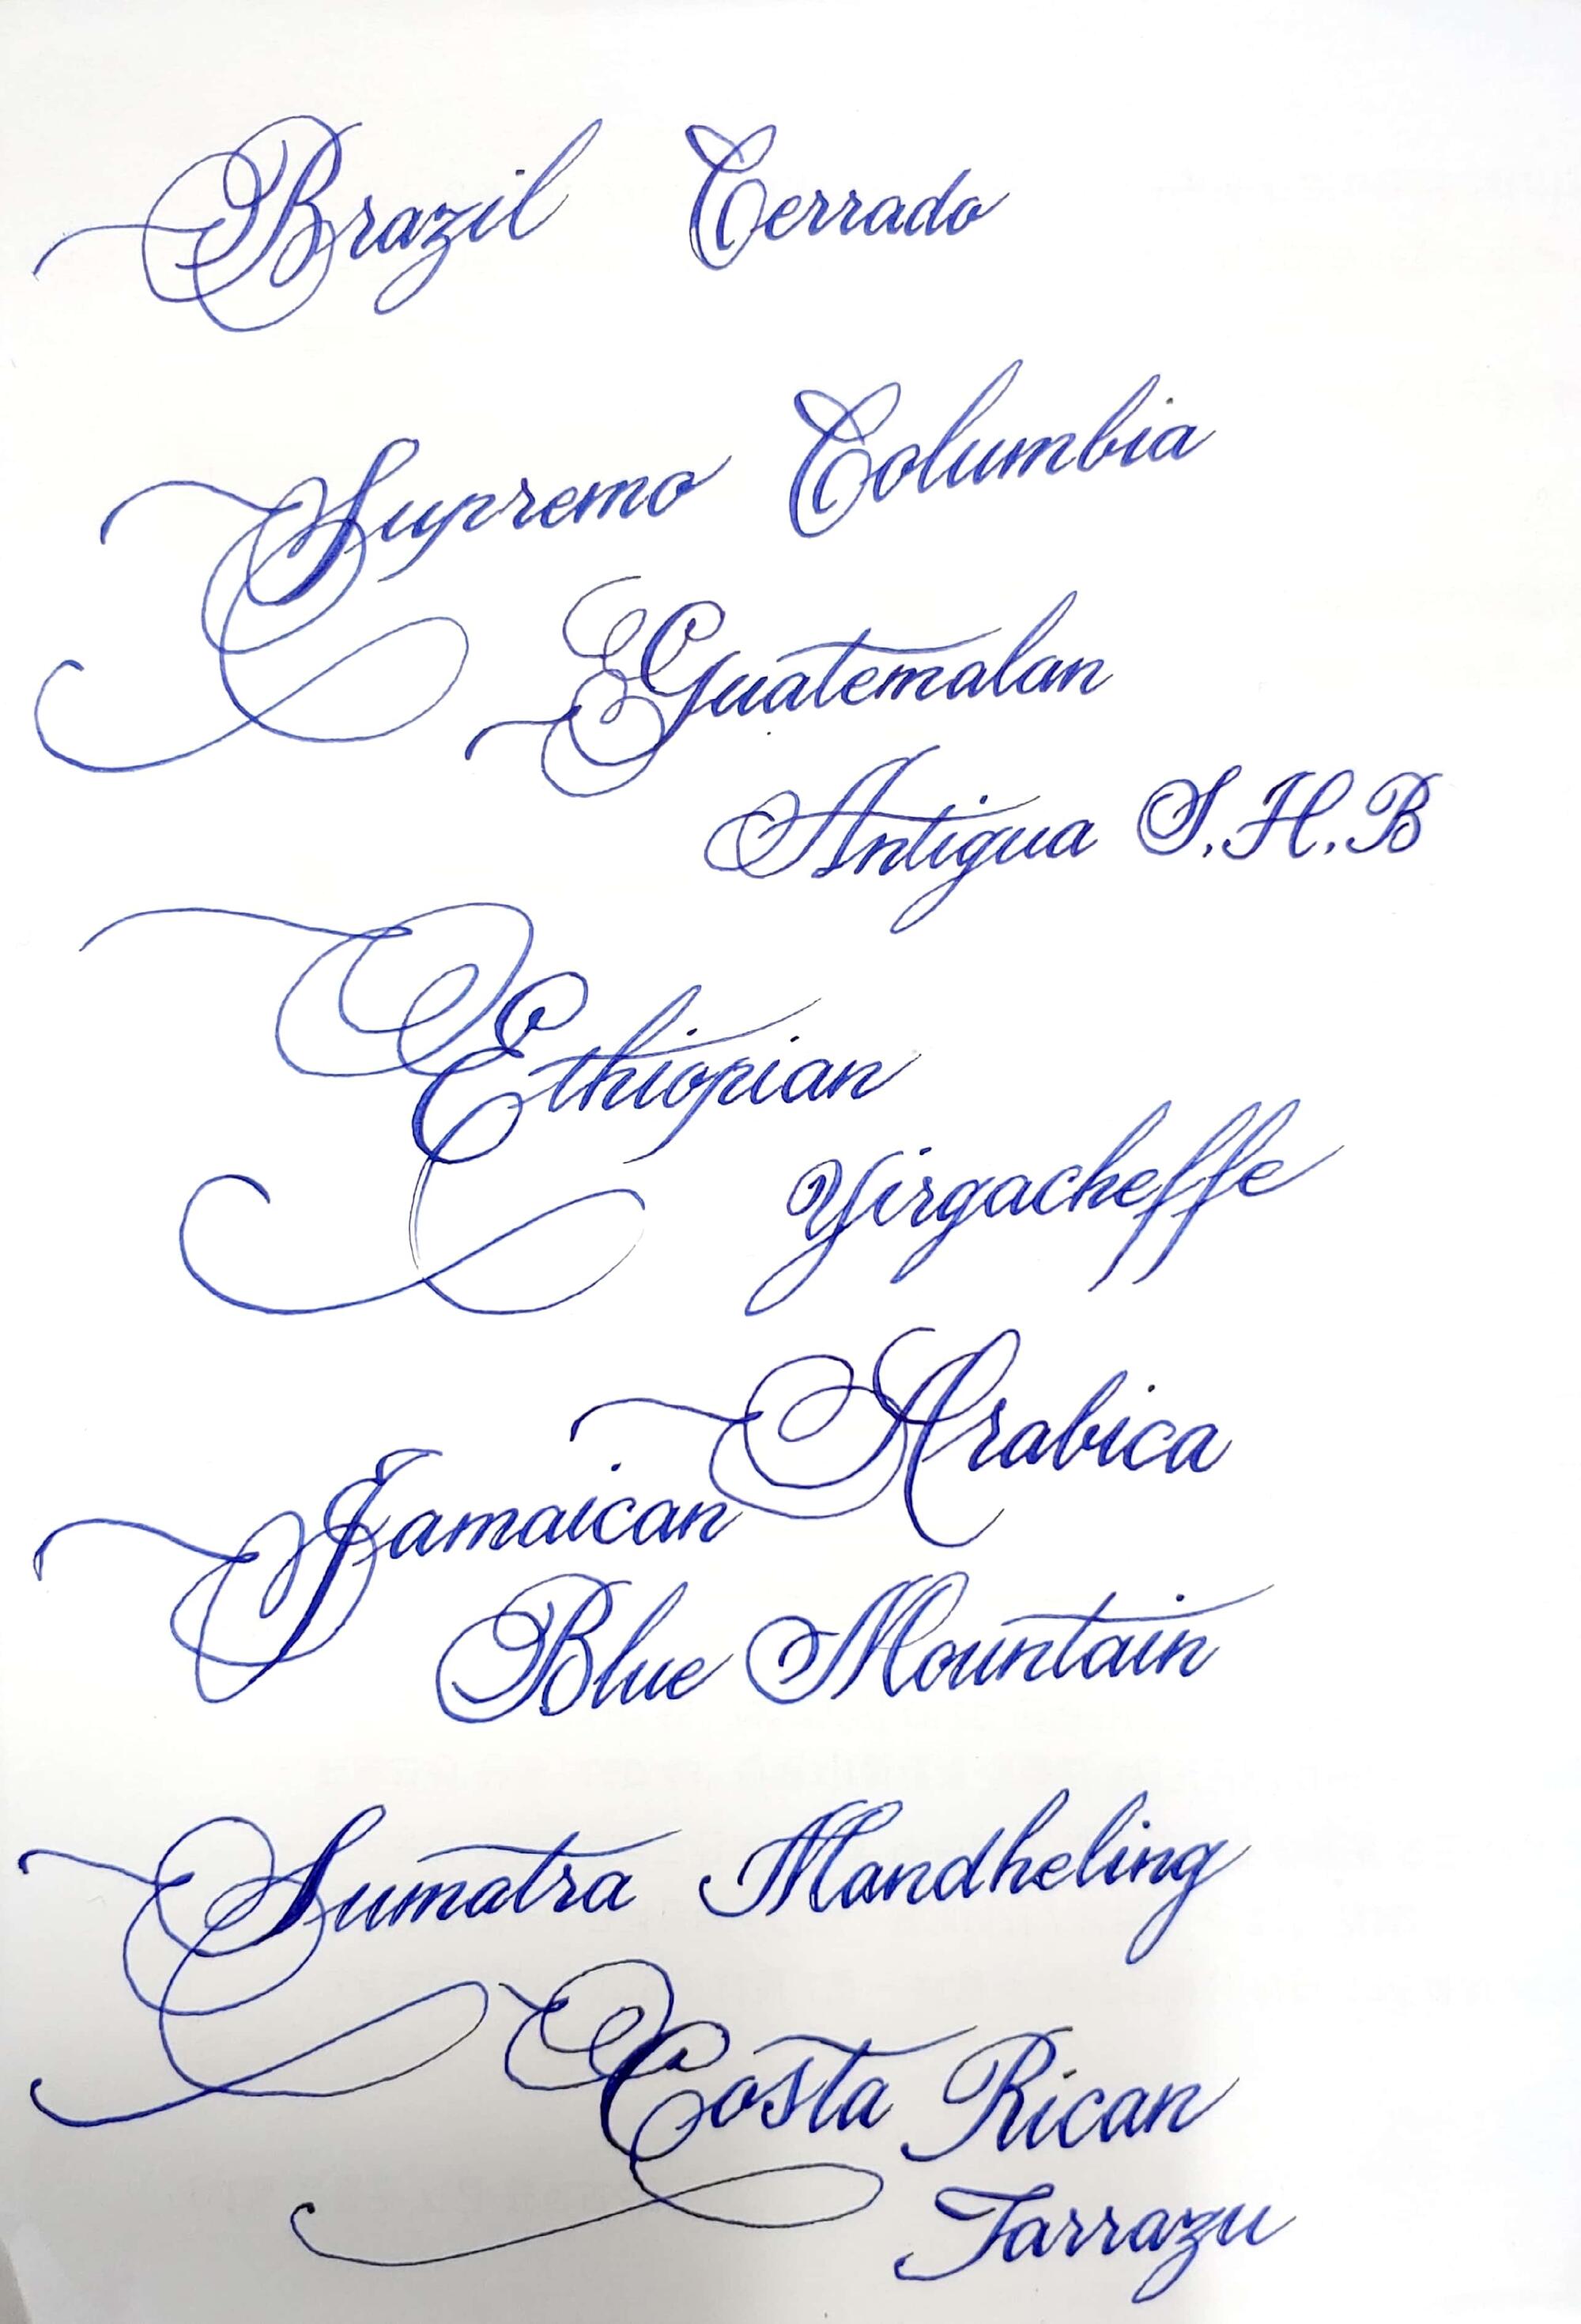 Brazil Cerrado
Supremo Columbia
Guatemalan
Antigua S.H.B
Ethiopian
Yirgacheffe
Arabica
Jamaican
Blue Mountain
Sumatra Mandheling
Costa Rican
Tarrazu